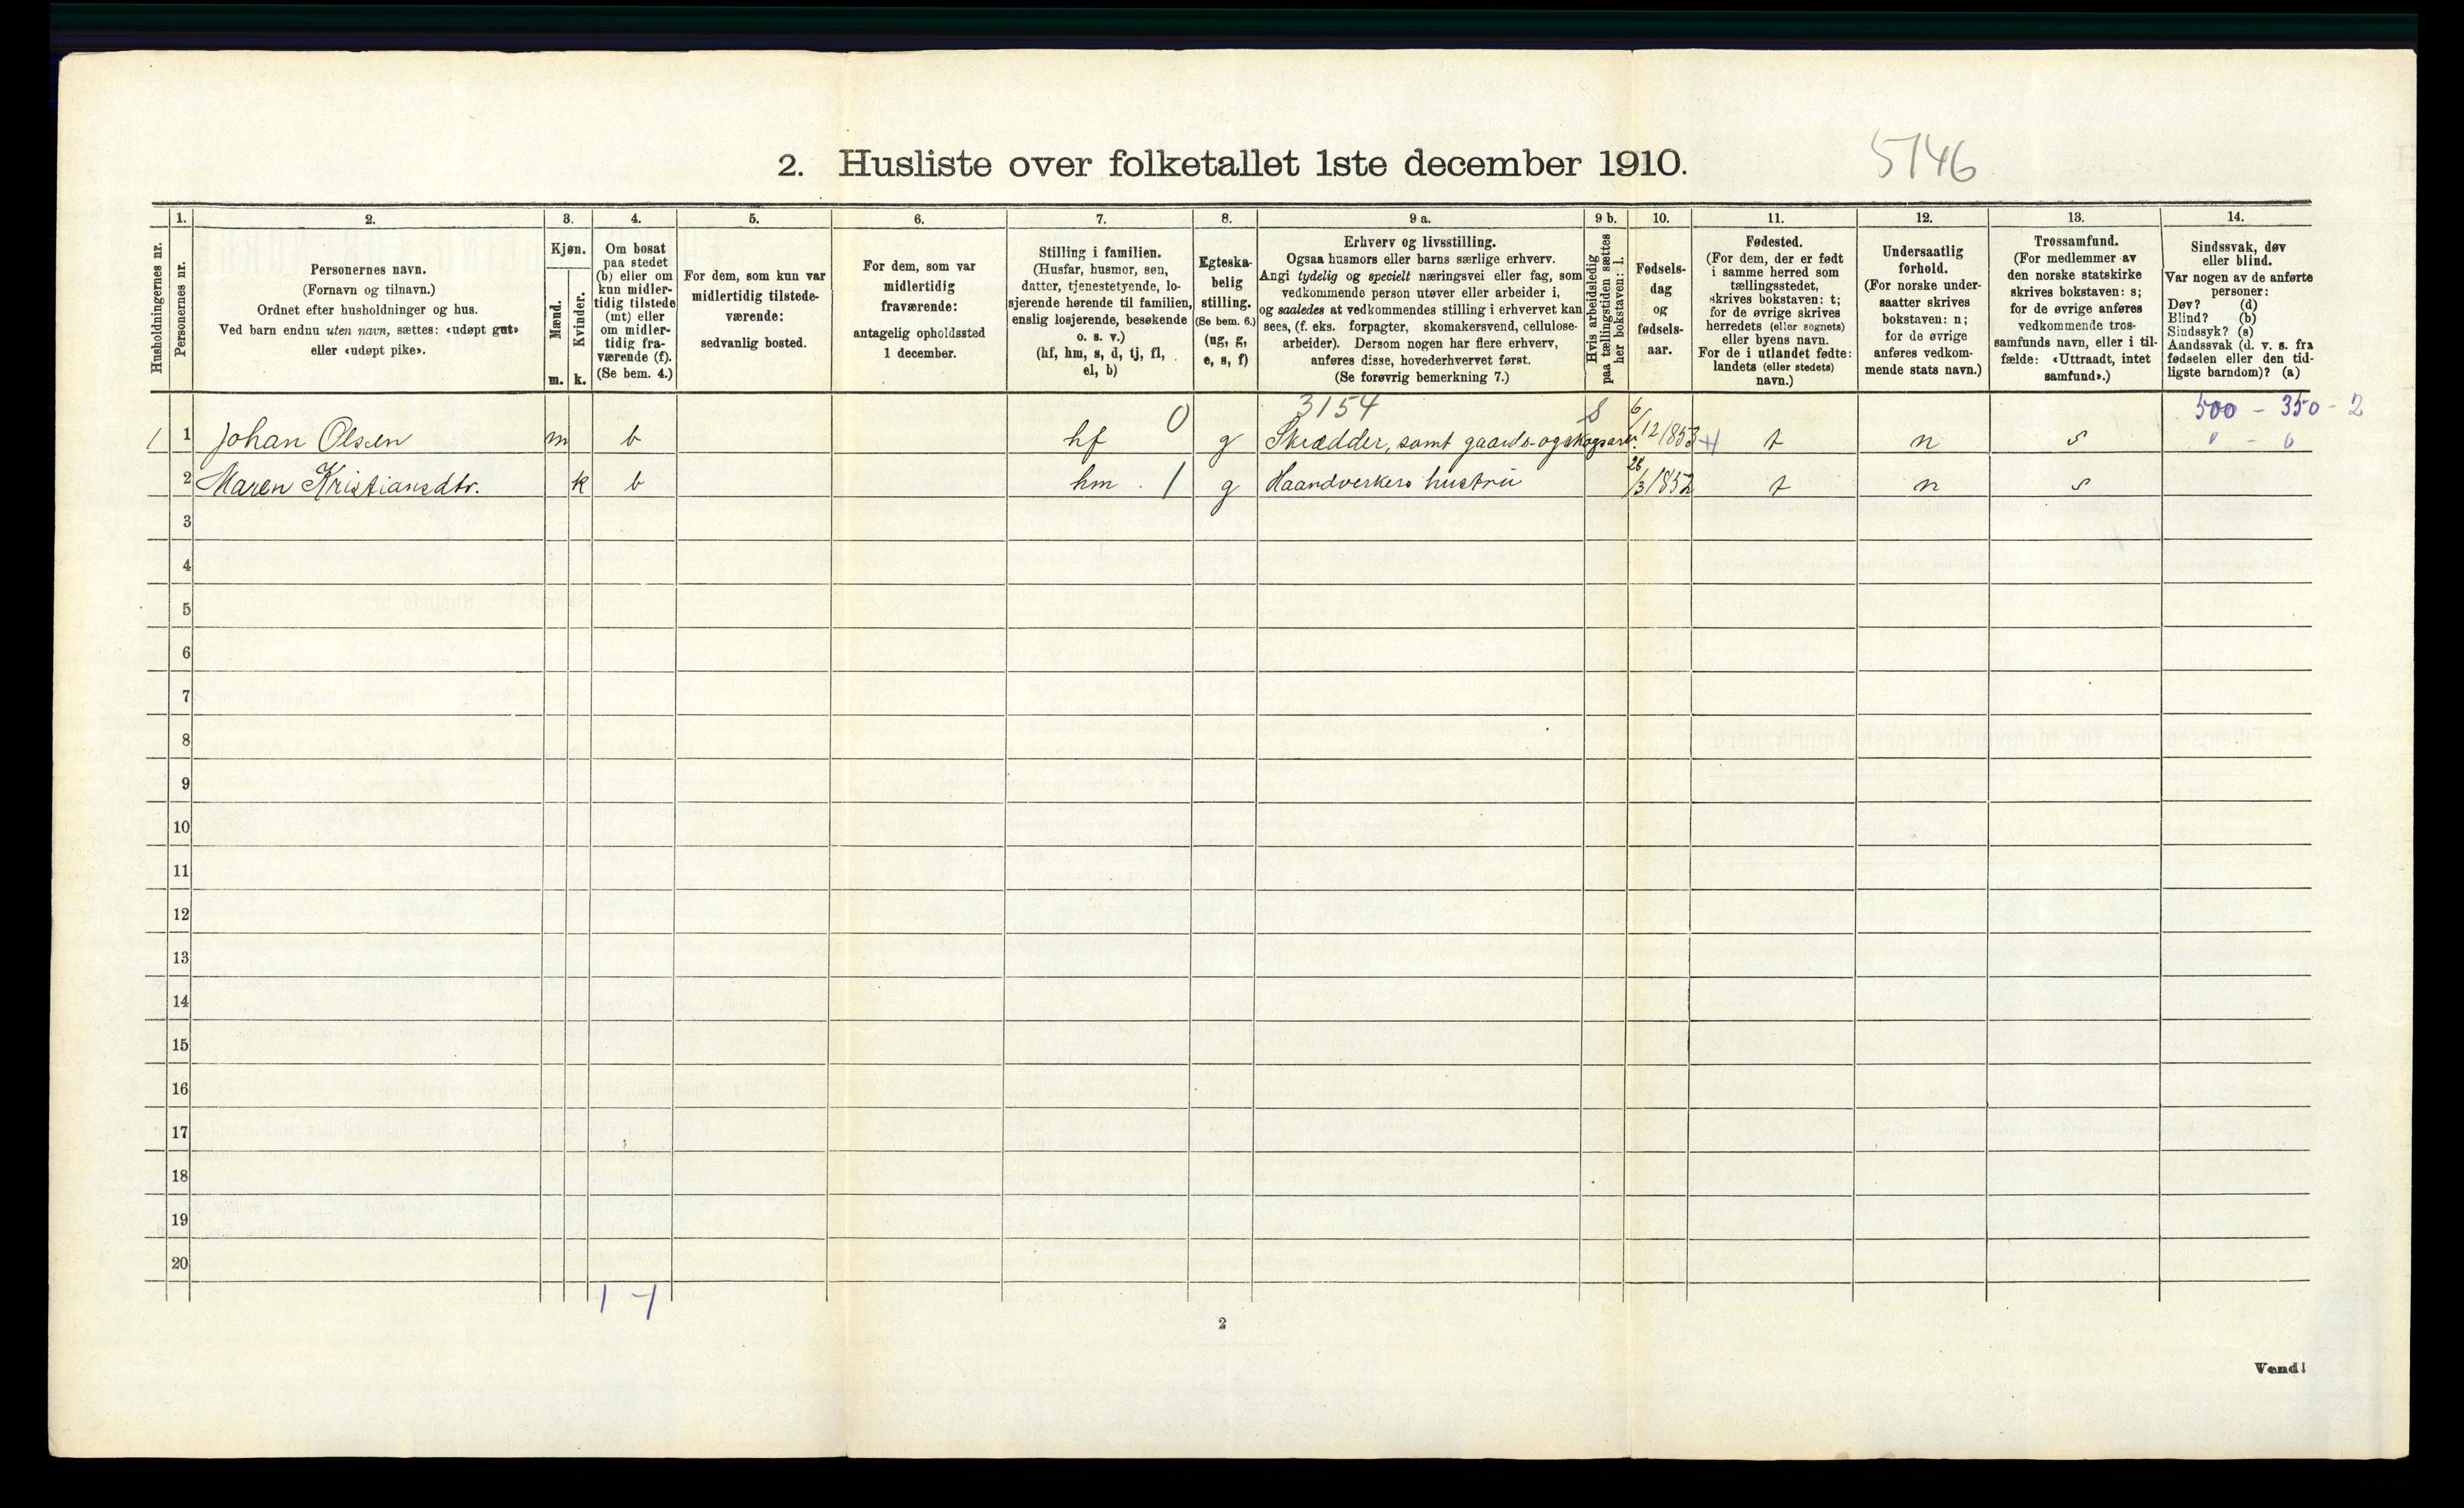 2. Husliste over folketallet 1ste december 1910.
5146
Husholdningernes nr.
1.
Personernes nr.
2.
Personernes navn.
(Fornavn og tilnavn.)
Ordnet efter husholdninger og hus.
Ved barn endnu uten navn, sættes: «udøpt gut»
eller «udøpt pike».
3.
Kjøn.
Mænd.
Kvinder.
m.
k.
4.
Om bosat
paa stedet
(b) eller om
kun midler-
tidig tilstede
(mt) eller
om midler-
tidig fra-
værende (f).
(Se bem. 4.)
5.
For dem, som kun var
midlertidig tilstede-
værende:
sedvanlig bosted.
6.
For dem, som var
midlertidig
fraværende:
antagelig opholdssted
1 december.
7.
Stilling i familien.
(Husfar, husmor, søn,
datter, tjenestetyende, lo-
sjerende hørende til familien,
enslig losjerende, besøkende
o. s. v.)
(hf, hm, s, d, tj, fl,
el, b)
8.
Egteska-
belig
stilling.
(Se bem. 6.)
(ug, g,
e, s, f)
9 a.
Erhverv og livsstilling.
Ogsaa husmors eller barns særlige erhverv.
Angi tydelig og specielt næringsvei eller fag, som
vedkommende person utøver eller arbeider i,
og saaledes at vedkommendes stilling i erhvervet kan
sees, (f. eks. forpagter, skomakersvend, cellulose-
arbeider). Dersom nogen har flere erhverv,
anføres disse, hovederhvervet først.
(Se forøvrig bemerkning 7.)
9 b.
Hvis arbeidsledig
paa tællingstiden sættes
her bokstaven: l.
10.
Fødsels-
dag
og
fødsels-
aar.
11.
Fødested.
(For dem, der er født
i samme herred som
tællingsstedet,
skrives bokstaven: t;
for de øvrige skrives
herredets (eller sognets)
eller byens navn.
For de i utlandet fødte:
landets (eller stedets)
navn.)
12.
Undersaatlig
forhold.
(For norske under-
saatter skrives
bokstaven: n;
for de øvrige
anføres vedkom-
mende stats navn.)
13.
Trossamfund.
(For medlemmer av
den norske statskirke
skrives bokstaven: s;
for de øvrige anføres
vedkommende tros-
samfunds navn, eller i til-
fælde: «Uttraadt, intet
samfund».)
14.
Sindssvak, døv
eller blind.
Var nogen av de anførte
personer:
Døv? (d)
Blind? (b)
Sindssyk? (s)
Aandssvak (d. v. s. fra
fødselen eller den tid-
ligste barndom)? (a)
3154 500 - 350 - 2
1 1 Johan Olsen m b hf 0 g Skrædder, samt gaards-og skogsarb. s 6/12 1853 t n s 0 - 0
2 Maren Kristiansdtr. k b hm . 1 g Haandverkers hustru 28/3 1852 t n s
3
4
5
6
7
8
9
10
11
12
13
14
15
16
17
18
19
20
1 - 1
2
Vend!